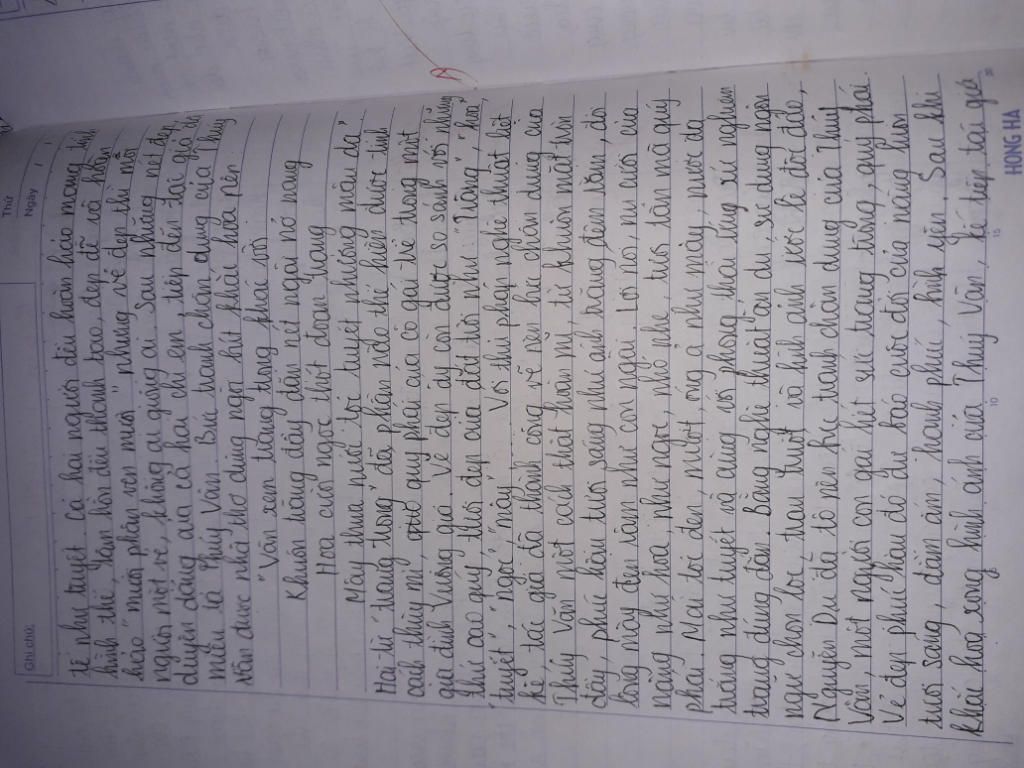 Thứ
Ngày / /
Ghi chú:
tế như tuyết cả hai người đều hoàn hảo mang
hình thể, tâm hồn đều thanh tao, đẹp đẽ và hoàn
hảo "mười phân vẹn mười" nhưng vẻ đẹp thì mỗi
người một vẻ, không ai giống ai. Sau những nét đẹp
duyên dáng của cả hai chị em, tiếp đến tác giả
mẫu là Thúy Vân. Bức tranh chân dung của Thúy
Vân được nhà thơ dùng ngòi bút khắc họa nên
"Vân xem trang trọng khác vời
Khuôn trăng đầy đặn nét ngài nở nang
Hoa cười ngọc thốt đoan trang
Mây thua nước tóc tuyết nhường màu da"
Hai từ "trang trọng" đã phần nào thể hiện được tính
cách thùy mị, cao quý phái của cô gái trẻ trong một
gia đình Vương giả. Vẻ đẹp ấy còn được so sánh với những
thứ cao quý, tươi đẹp của đất trời như: "Trăng", "hoa",
"tuyết", "ngọc", "mây". Với thủ pháp nghệ thuật liệt
kê, tác giả đã thành công vẽ nên bức chân dung của
Thúy Vân một cách thật hoàn mĩ, từ khuôn mặt tròn
đầy, phúc hậu tươi sáng như ánh trăng đêm rằm, đôi
lông mày đen đậm như con ngài. Lời nói, nụ cười của
nàng như hoa như ngọc, nhỏ nhẹ, tươi tắn mà quý
phái. Mái tóc đen, mượt, óng ả như mây, nước da
trắng như tuyết và cùng với phong thái ung xử nghiêm
trang đúng đắn. Bằng nghệ thuật ẩn dụ, sử dụng ngôn
ngữ chọn lọc, trau chuốt và hình ảnh ước lệ độc đáo,
Nguyễn Du đã tô nên bức tranh chân dung của Thúy
Vân, một người con gái hết sức trang trọng, quý phái.
Vẻ đẹp phúc hậu đó dự báo cuộc đời của nàng luôn
tươi sáng, đầm ấm, hạnh phúc, bình yên. Sau khi
khắc họa xong hình ảnh của Thúy Vân, kế tiếp, tác giả
5 10 15 20
HONG HA